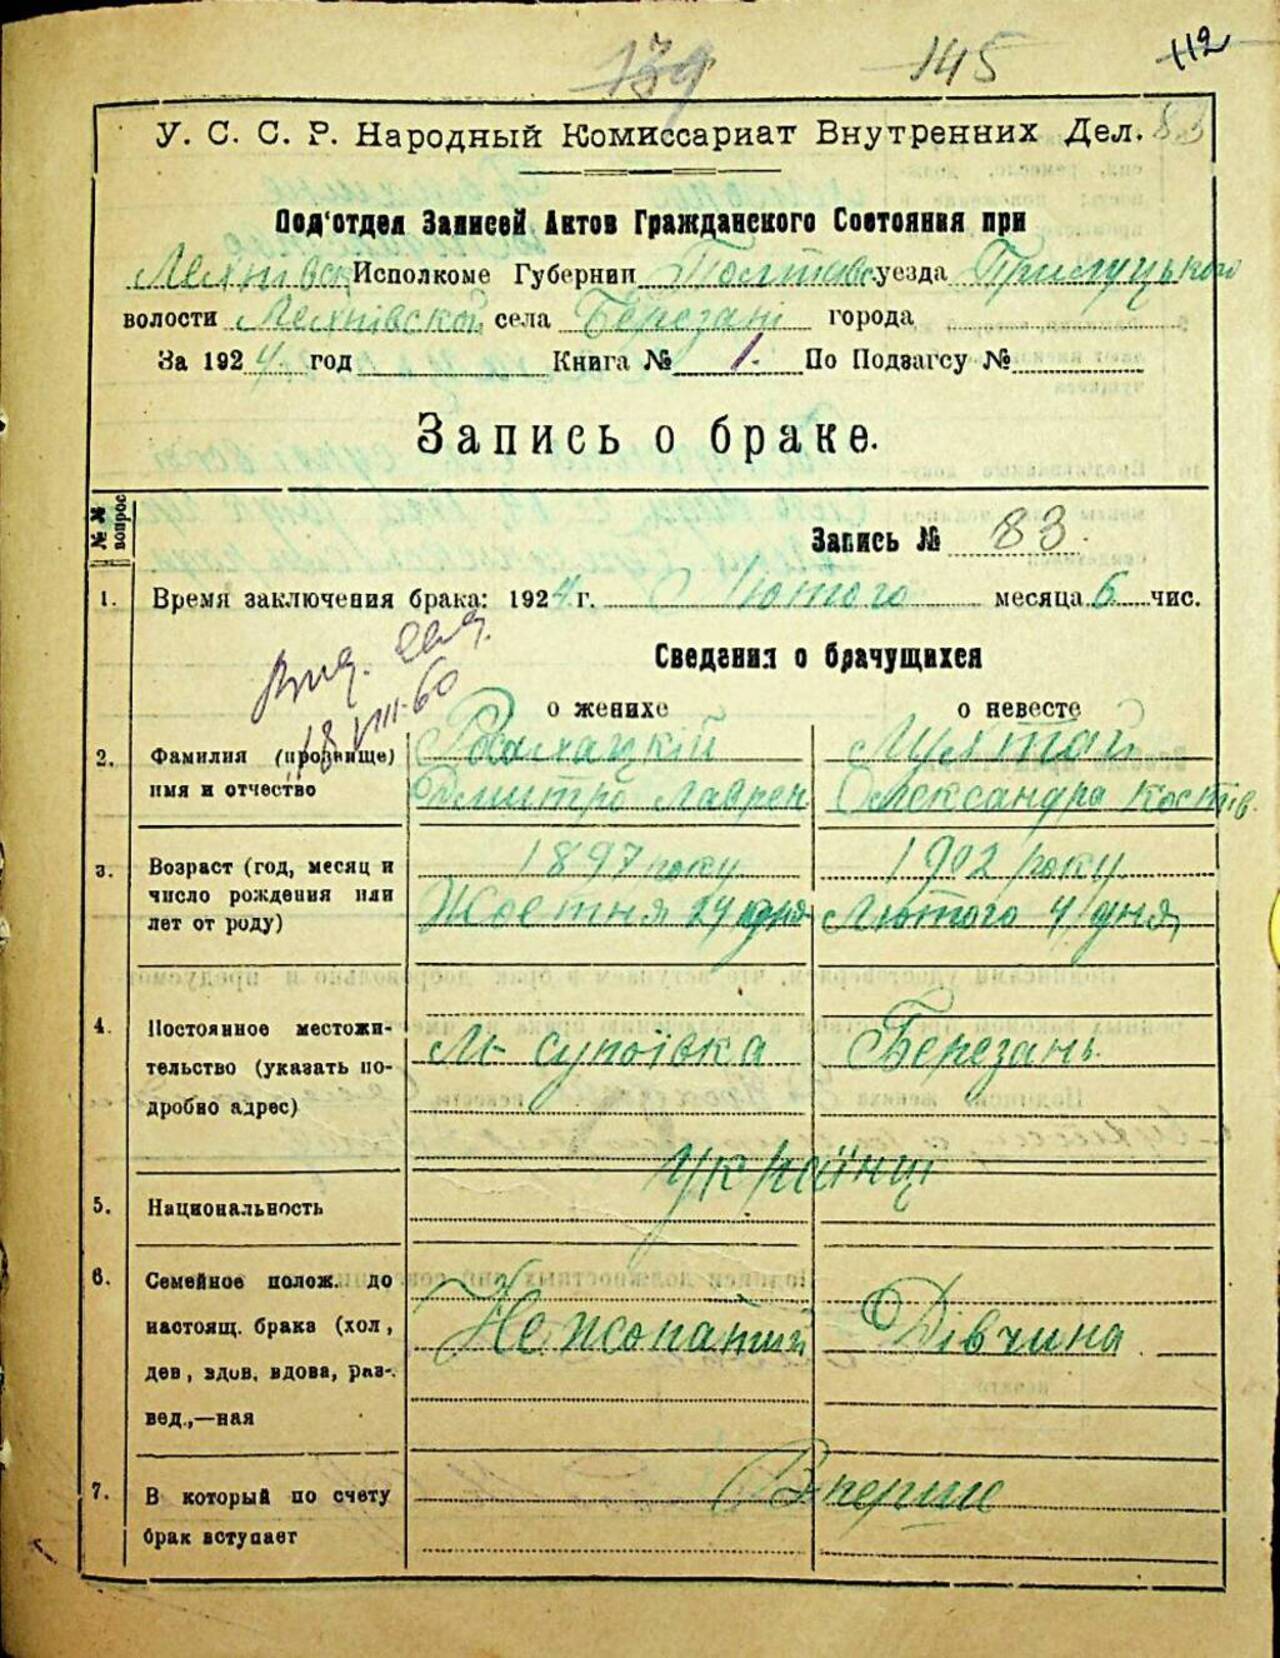 139 145 112
У. С. С. Р. Народный Комиссариат Внутренних Дел. 83
Под'отдел Записей Актов Гражданского Состояния при
Исполкоме Губернии Полтавс. уезда Прилуцького
волости Лехнівской села Березані города
За 1924 год Книга № 1. По Подзагсу №
Запись о браке.
№№ вопрос
Запись № 83.
1. Время заключения брака: 1924 г. Лютого месяца 6 чис.
Сведения о брачущихся
Выд.
18 VIII-60
о женихе о невесте
2. Фамилия (прозвище) Лухтай
имя и отчество Дмитро Лаврен Олександра Костів.
3. Возраст (год, месяц и 1897 року 1902 року
число рождения или Жовтня 24 дня Лютого 4 дня
лет от роду)
4. Постоянное местожи-
тельство (указать по- М-Супоівка Березань
дробно адрес)
Українці
5. Национальность
6. Семейное полож. до
настоящ. брака (хол, Не жонатий Дівчина
дев, вдов, вдова, раз-
вед.,—ная
7. В который по счету Вперше
брак вступает